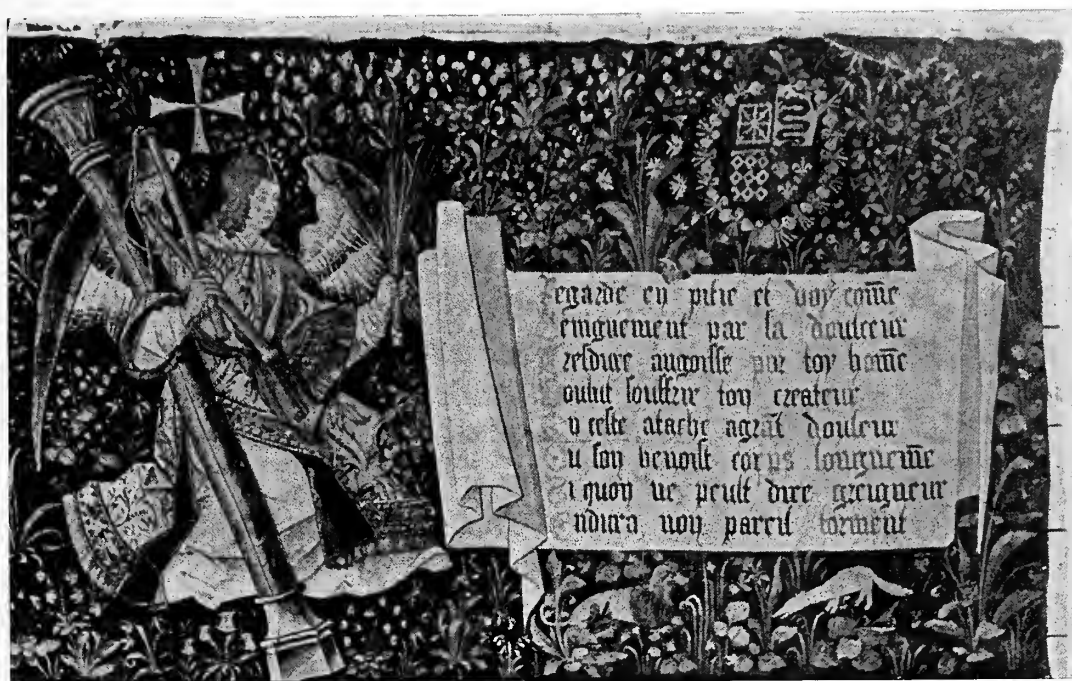 egarde en pitie et voy com̄e
enignement par sa doulceur
resdure angoisse pur toy hom̄e
oulut souffrir ton createur
n ceste atache agrāt douleur
u son benoist corps longuem̄e
i quon ne peult dire greigneur
ndura non pareil torment